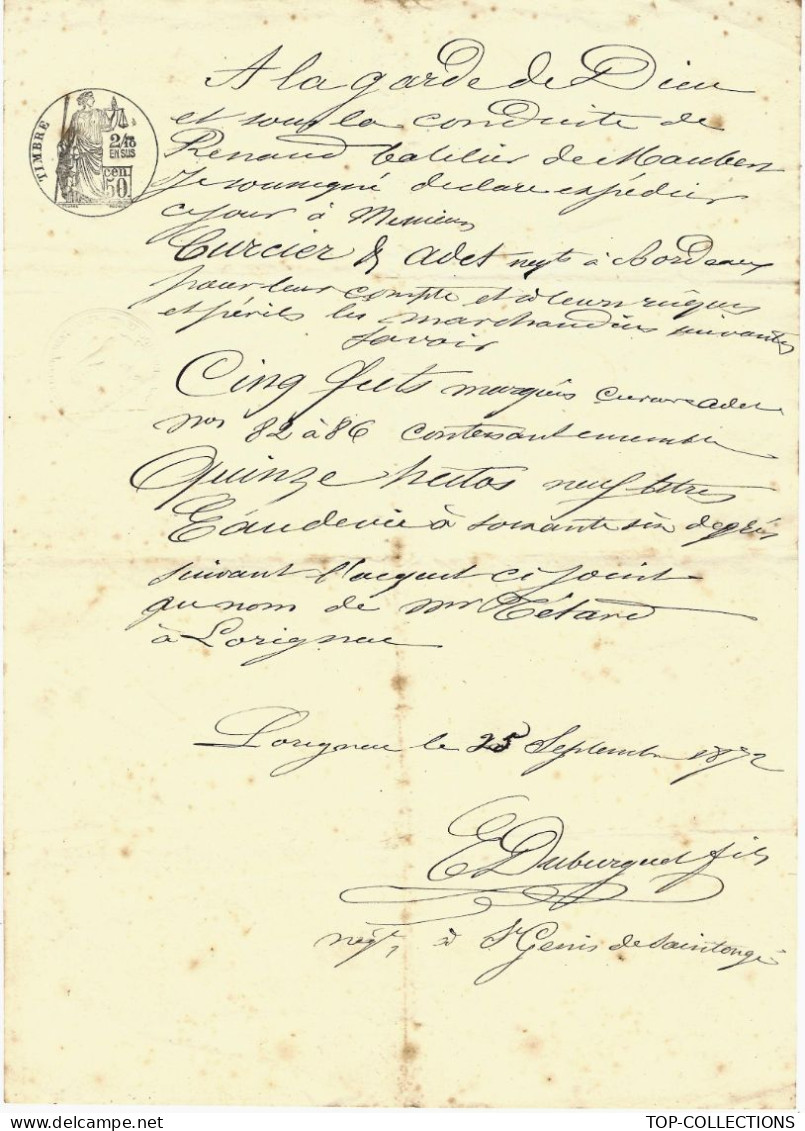 A la garde de Dieu
et sous la conduite de
Renaud batelier de Maubert
Je soussigné declare expédier
ce jour à Messieurs
TIMBRE
2/10
EN SUS
cen
50
Curcier & Adet negts à Bordeaux
pour leur compte et à leurs risques
et périls les marchandises suivantes
Savoir
Cinq futs marqués Curcier Adet
nos 82 à 86 contenant ensemble
Quinze hectos neuf litres
Eaudevie à soixante six degrés
suivant l'acquit ci joint
au nom de mr Tétard
à Lorignac
Lorignac le 25 Septembre 1872
E Duburguet fils
négt à St Genis de Saintonge
TOP-COLLECTIONS